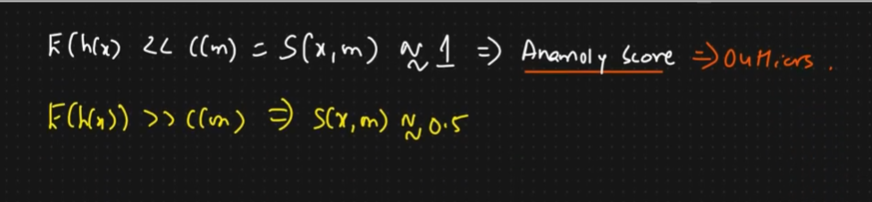 E(h(x) << c(m) = S(x,m) ≈ 1 => Anamoly Score => Outliers .
E(h(x)) >> c(m) => S(x,m) ≈ 0.5